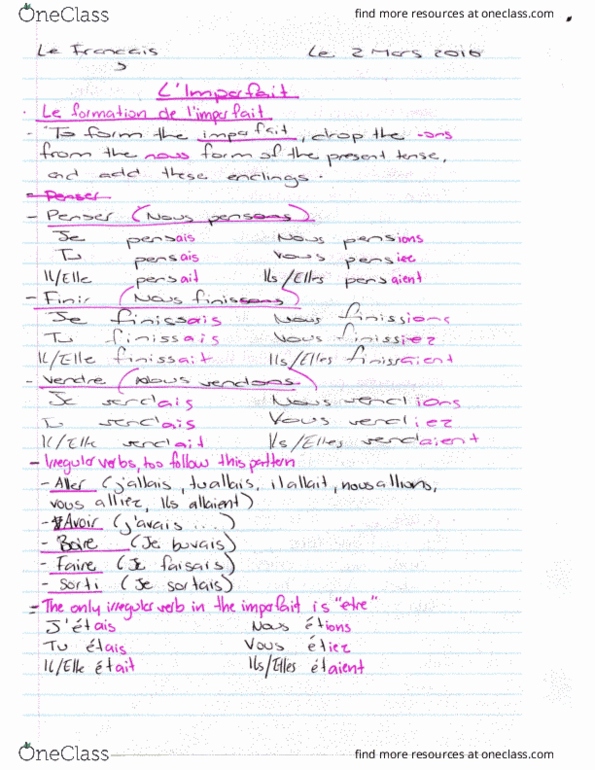 OneClass find more resources at oneclass.com
Le Francais Le 2 Mars 2016
L'Imparfait
Le formation de l'imparfait
- To form the imparfait, drop the -ons
from the nous form of the present tense,
and add these endings.
- Penser
- Penser (Nous pensons)
Je pensais Nous pensions
Tu pensais Vous pensiez
Il/Elle pensait Ils/Elles pensaient
- Finir (Nous finissons)
Je finissais Nous finissions
Tu finissais Vous finissiez
Il/Elle finissait Ils/Elles finissaient
- Vendre (Nous vendons)
Je vendais Nous vendions
Tu vendais Vous vendiez
Il/Elle vendait Ils/Elles vendaient
- Irregular verbs, too follow this pattern
- Aller (j'allais, tu allais, il allait, nous allions,
vous alliez, Ils allaient)
- Avoir (j'avais ...)
- Boire (Je buvais)
- Faire (Je faisais)
- Sorti (Je sortais)
- The only irregular verb in the imparfait is "etre"
J'étais Nous étions
Tu étais Vous étiez
Il/Elle était Ils/Elles étaient
OneClass find more resources at oneclass.com